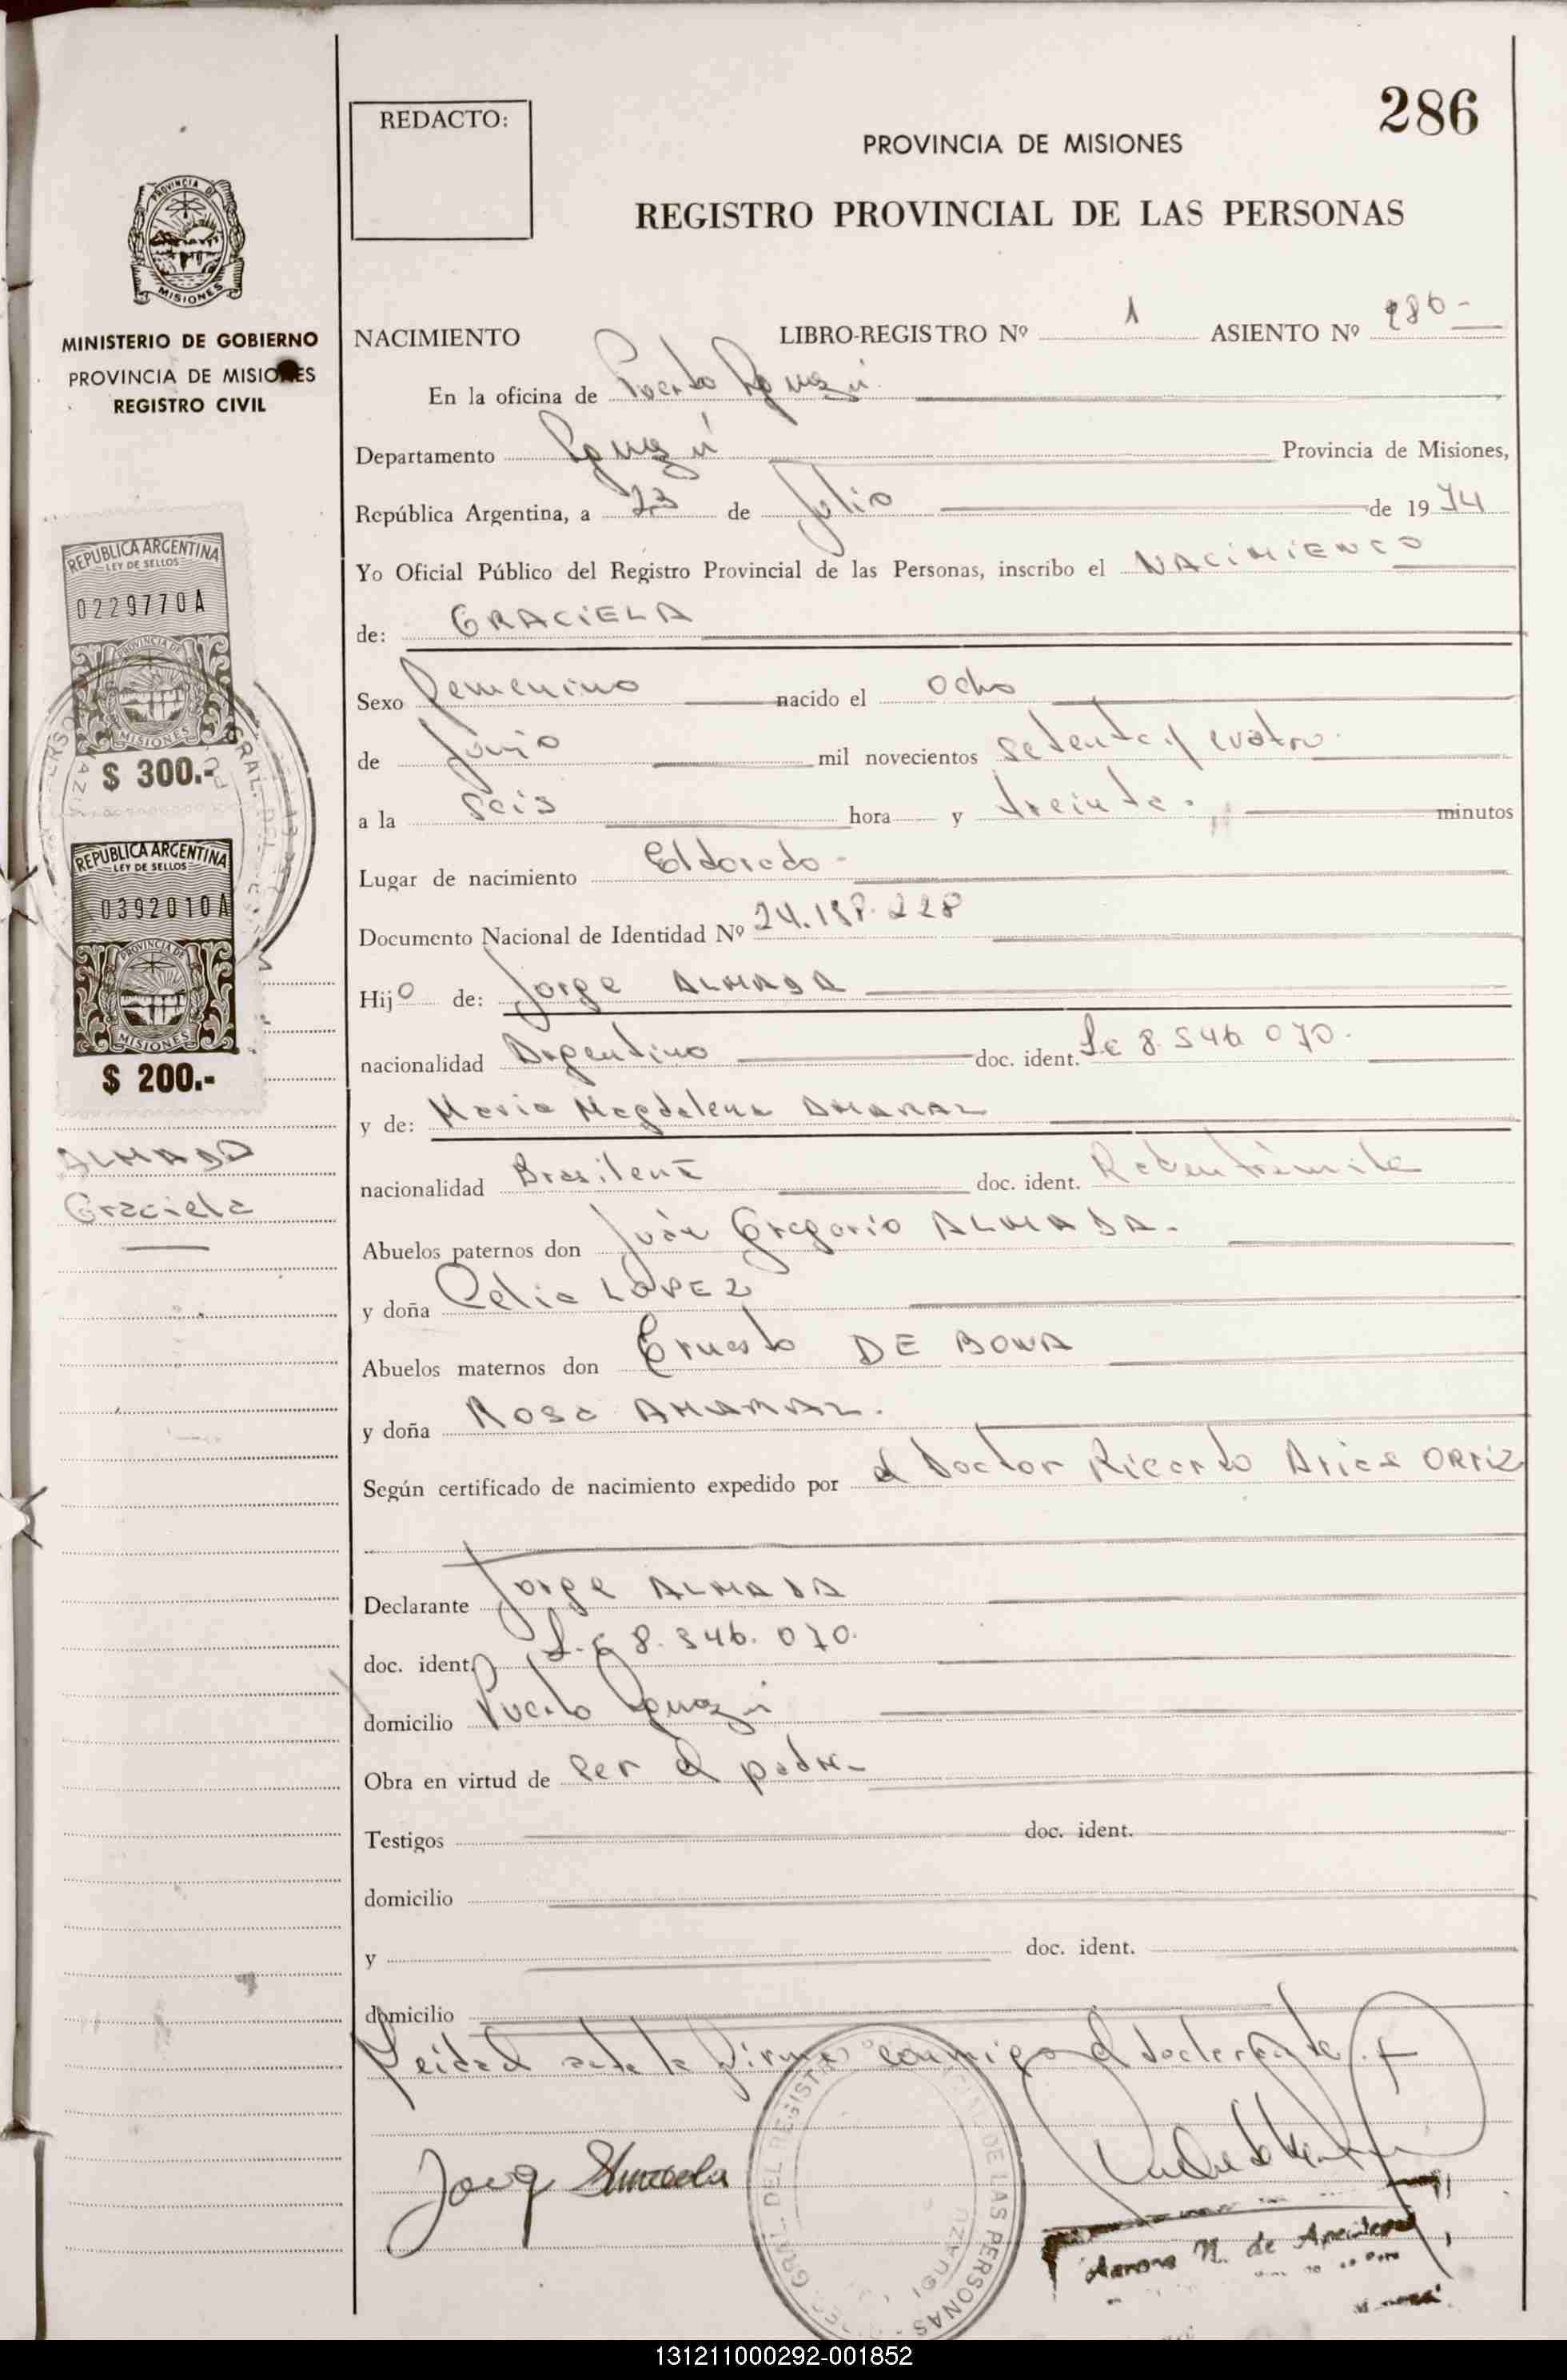 286
REDACTO:
PROVINCIA DE MISIONES
REGISTRO PROVINCIAL DE LAS PERSONAS
MISIONES
MINISTERIO DE GOBIERNO
PROVINCIA DE MISIONES
REGISTRO CIVIL
NACIMIENTO LIBRO-REGISTRO Nº 1 ASIENTO Nº 286-
En la oficina de Puerto Iguazú
Departamento Iguazú Provincia de Misiones,
República Argentina, a 23 de Julio de 1974
Yo Oficial Público del Registro Provincial de las Personas, inscribo el NACIMIENTO
de: GRACIELA
Sexo Femenino nacido el ocho
de Junio mil novecientos setenta y cuatro
a la seis hora y treinta minutos
Lugar de nacimiento Eldorado-
Documento Nacional de Identidad Nº 24.
Hijo de: Jorge ALMADA
nacionalidad Argentino doc. ident. 070.
y de: Maria Magdalena AMARAL
nacionalidad Brasilena doc. ident.
Abuelos paternos don Juán Gregorio ALMADA.
y doña Celia LOPEZ
Abuelos maternos don Ernesto DE BONA
y doña Rosa AMARAL.
Según certificado de nacimiento expedido por el Doctor Ricardo Arias ORTIZ
Declarante Jorge ALMADA
doc. ident. 8.546.070.
domicilio Puerto Iguazú
Obra en virtud de ser el padre-
Testigos doc. ident.
domicilio
y doc. ident.
domicilio
Leida el acta la firma conmigo el declarante.
REPUBLICA ARGENTINA
LEY DE SELLOS
0229770A
PROVINCIA DE
MISIONES
$ 300.-
REPUBLICA ARGENTINA
LEY DE SELLOS
0392010A
PROVINCIA DE
MISIONES
$ 200.-
ALMADA
Graciela
GRAL. DEL REGISTRO DE LAS PERSONAS
IGUAZU
N. de
131211000292-001852